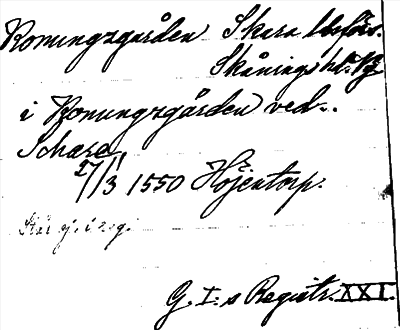 Konungzgården Skara landsförs.
Skånings hd. Vg
i Konungzgården ved..
Schara,
27/3 1550 Höjentorp.
Står ej i reg.
G. I:s Registr. XXI.